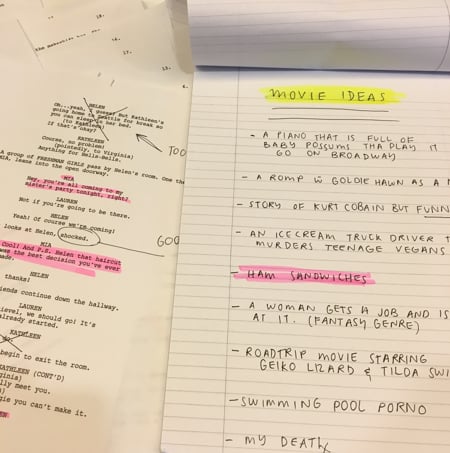 15.
13.
HELEN
Oh...yeah, I guess? But Kathleen's
going home to Seattle for break so
you can sleep in her bed.
(to Kathleen)
If that's okay?
KATHLEEN
Course, no problem!
(pointedly, to Virginia)
Anything for Hells-Bells.
A group of FRESHMAN GIRLS pass by Helen's room. One
MIA, leans into the open doorway.
MIA
Hey, you're all coming to my
sister's party tonight, right?
LAUREN
Not if you're going to be there.
HELEN
Yeah! Of course we're coming!
looks at Helen, shocked.
Cool! And P.S. Helen that haircut
was the best decision you've ever
made.
HELEN
thanks!
friends continue down the hallway.
LAUREN
we should go! It's
already started.
KATHLEEN
begin to exit the room.
KATHLEEN (CONT'D)
meet you.
you can't make it.
TOO
GOO
MOVIE IDEAS
- A PIANO THAT IS FULL OF
BABY POSSUMS THA PLAY IT
GO ON BROADWAY
- A ROMP W GOLDIE HAWN AS A
- STORY OF KURT COBAIN BUT FUNN
- AN ICECREAM TRUCK DRIVER T
MURDERS TEENAGE VEGANS
- HAM SANDWICHES
- A WOMAN GETS A JOB AND IS
AT IT. (FANTASY GENRE)
- ROADTRIP MOVIE STARRING
GEIKO LIZARD & TILDA SWI
- SWIMMING POOL PORNO
- MY DEATH